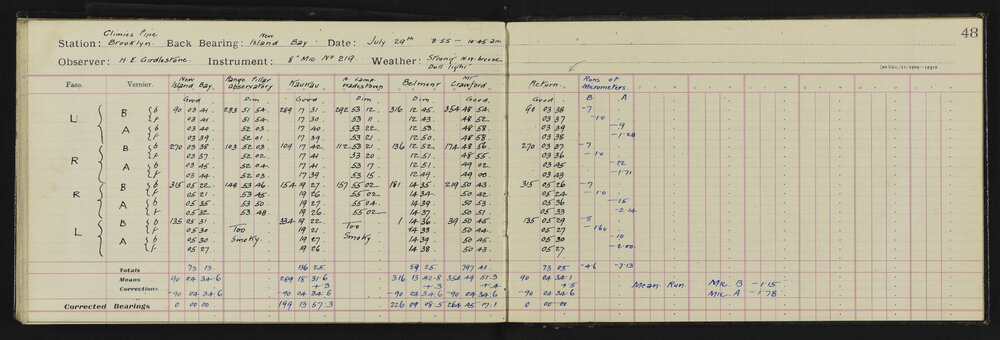 48
Climies Pipe
New
Station: Brooklyn. Back Bearing: Island Bay. Date: July 29th 8.55 — 10.45 am
Observer: H. E. Girdlestone. Instrument: 8" Mic No 219 Weather: Strong N.W. breeze
Dull light
Face. Vernier. New Island Bay. Range Pillar Observatory Kaukau N. Lamp Wadestown Belmont Mt Crawford Return Runs of Micrometers
Good Dim Good Dim Dim Good Good B A
L B b 90 03 41 283 51 54 289 17 31 292 53 12 316 12 45 354 48 54 90 03 38 -7
f 03 41 51 54 17 30 53 11 12 43 48 52 03 37 -10
A b 03 40 52 03 17 40 53 22 12 53 48 58 03 39 -9
f 03 39 52 01 17 39 53 21 12 50 48 58 03 38 -1.28
R B b 270 03 38 103 52 03 109 17 42 112 53 21 136 12 52 174 48 56 270 03 37 -7
f 03 37 52 02 17 41 53 20 12 51 48 55 03 36 -10
A b 03 45 52 04 17 41 53 17 12 51 49 02 03 45 -12
f 03 44 52 03 17 39 53 15 12 49 49 00 03 43 -1.71
R B b 315 05 22 148 53 46 154 19 27 157 55 02 181 14 35 219 50 43 315 05 26 -7
f 05 21 53 45 19 26 55 02 14 34 50 42 05 24 -10
A b 05 35 53 50 19 27 55 04 14 39 50 53 05 36 -15
f 05 32 53 48 19 26 55 02 14 37 50 51 05 33 -2.14
L B b 135 05 31 Too 334 19 22 Too 1 14 36 39 50 45 135 05 29 -8
f 05 30 Smoky 19 21 Smoky 14 33 50 44 05 27 -1.60
A b 05 30 19 27 14 39 50 45 05 30 -10
f 05 27 19 26 14 38 50 43 05 27 -2.00
Totals 73 13 136 25 59 25 797 41 73 05 -4.6 -7.13
Means 90 04 34.6 289 18 31.6 316 13 42.8 354 49 51.3 90 04 34.1
Corrections +.3 +.3 +.4 +.5 Mean Run. Mic B -1.15
-90 04 34.6 -90 04 34.6 -90 04 34.6 -90 04 34.6 -90 04 34.6 Mic. A -1.78
Corrected Bearings 0 00 00 199 13 57.3 226 09 08.5 264 45 17.1 0 00 00